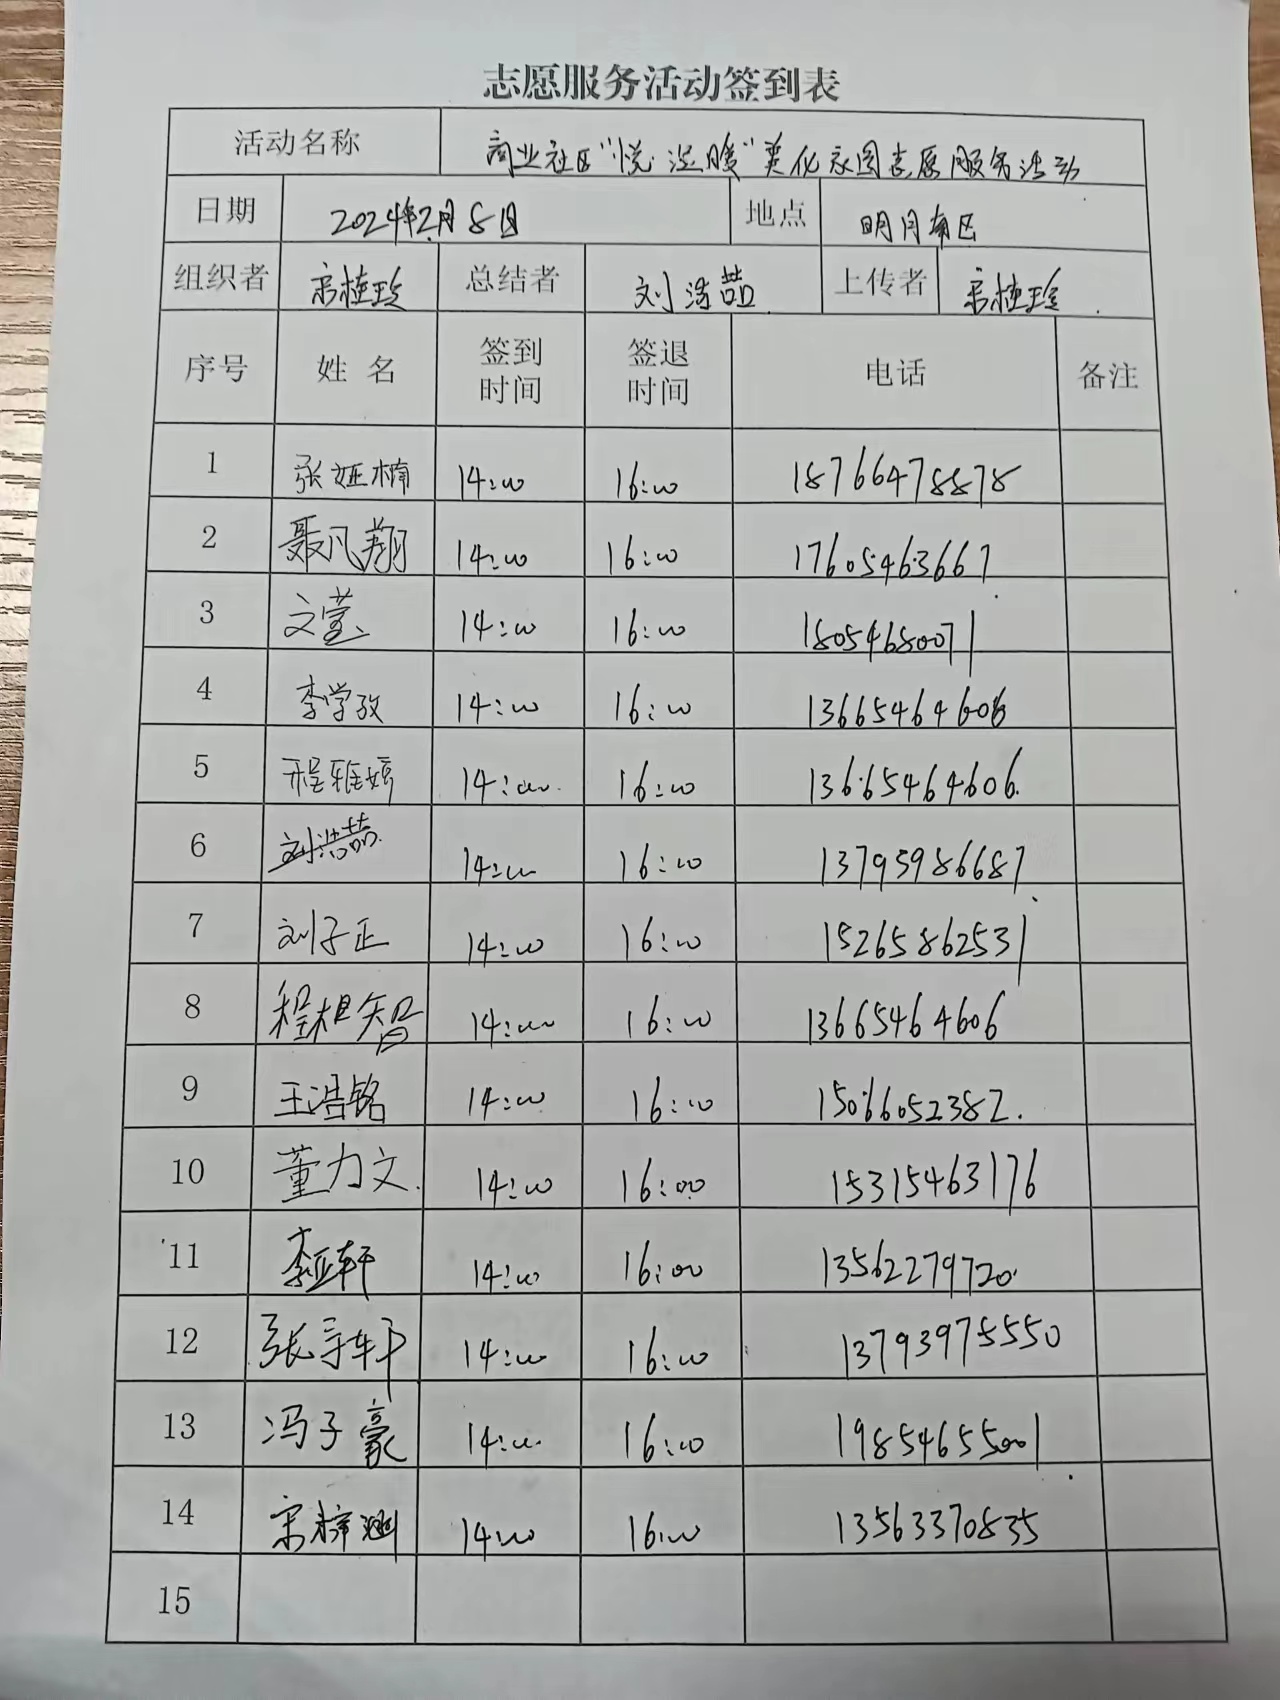 志愿服务活动签到表
活动名称 商业社区"悦·暖"美化家园志愿服务活动
日期 2024年2月8日 地点 明月南区
组织者 宋桂玲 总结者 刘浩喆 上传者 宋桂玲
序号 姓名 签到时间 签退时间 电话 备注
1 张娅楠 14:00 16:00 18766478878
2 聂凡翔 14:00 16:00 17605463667
3 文萱 14:00 16:00 18054680071
4 李学孜 14:00 16:00 13665464606
5 程雅婷 14:00 16:00 13665464606
6 刘浩喆 14:00 16:00 13795986687
7 刘子正 14:00 16:00 15265862531
8 程相智 14:00 16:00 13665464606
9 王浩铭 14:00 16:00 15066052382
10 董力文 14:00 16:00 15315463176
11 李亚轩 14:00 16:00 13562279720
12 张轩 14:00 16:00 13793975550
13 冯子豪 14:00 16:00 19854655001
14 宋梓涵 14:00 16:00 13563370835
15